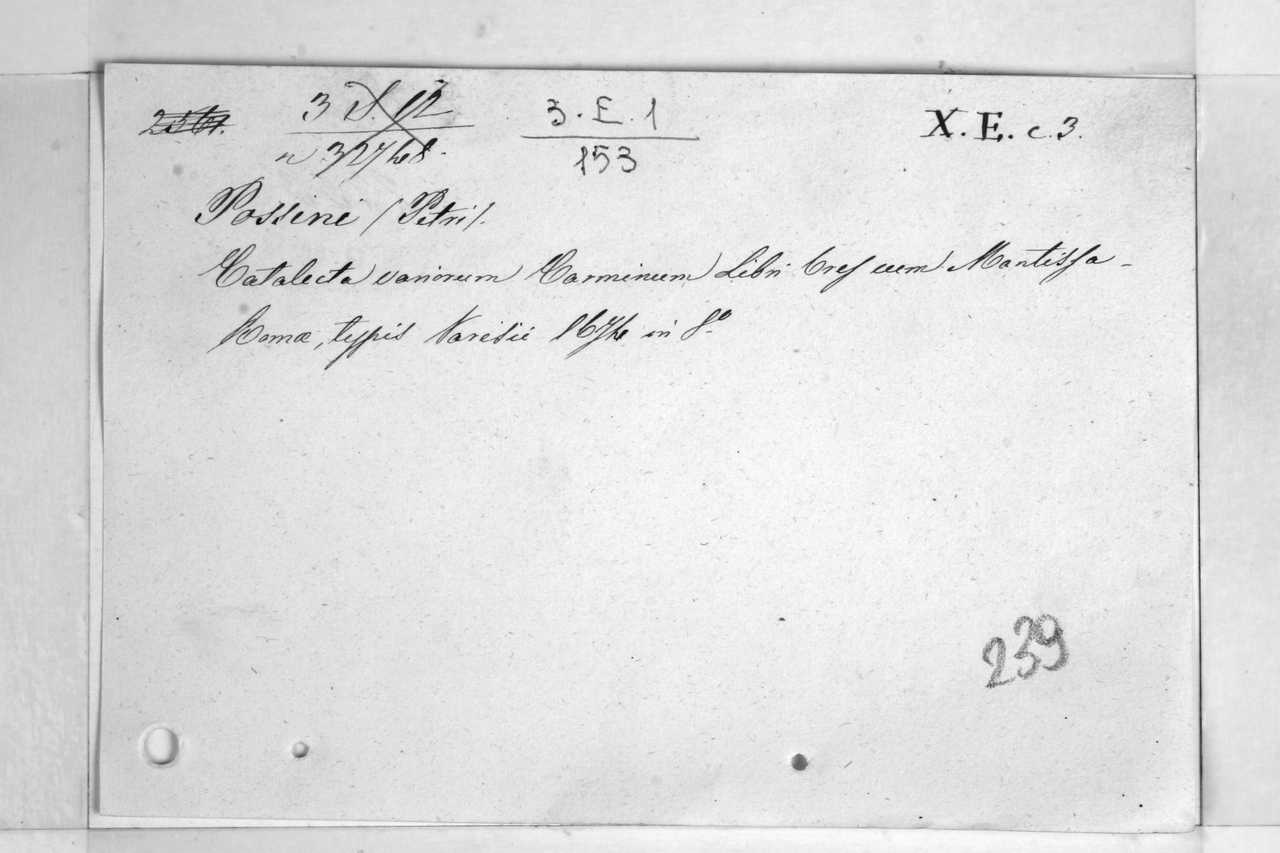 3. E. 1
153
X. E. c. 3.
Possini (Petri).
Catalecta variorum Carminum Libri tres cum Mantissa -
Romæ, typis Varesii 1674 in 8.º
239